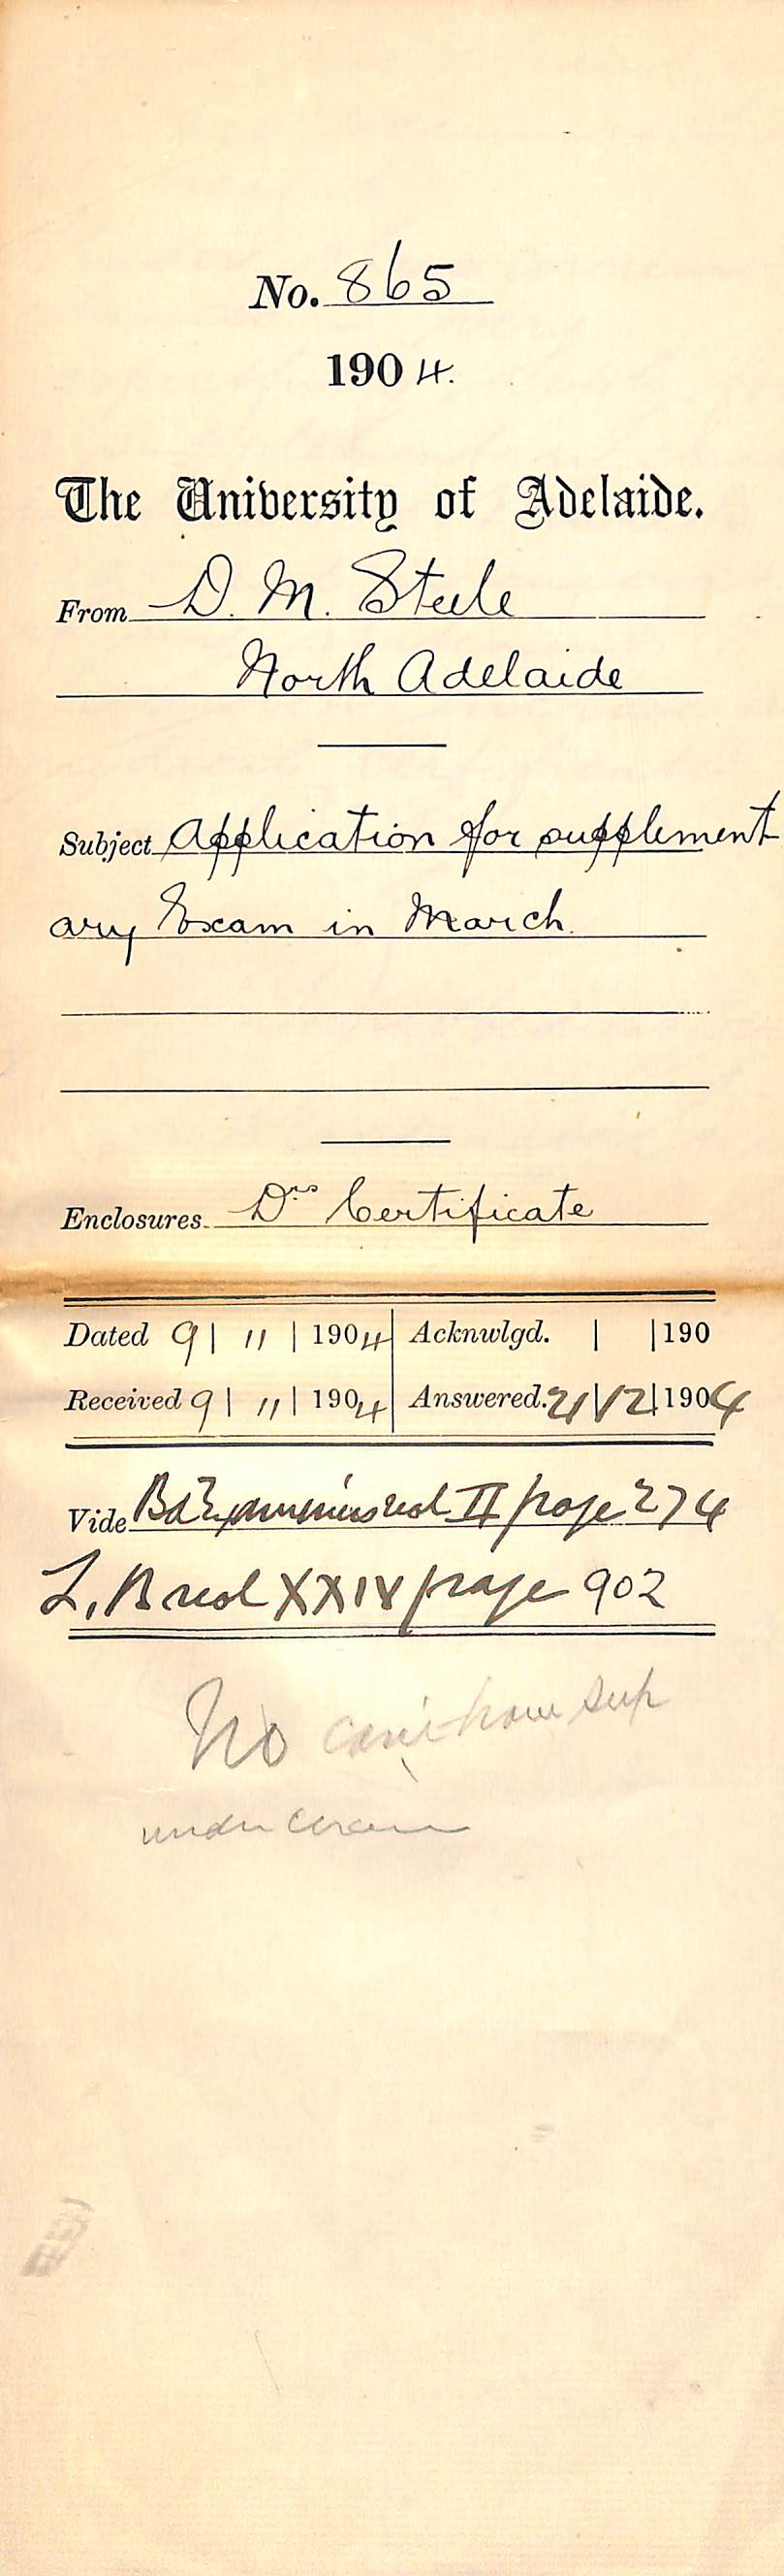 No. 865
1904.
The University of Adelaide.
From D. M. Steele
North Adelaide
Subject Application for supplement
ary Exam in March.
Enclosures. Drs Certificate
Dated 9 | 11 | 1904 Acknwlgd. | | 190
Received 9 | 11 | 1904 Answered. 21 | 12 | 1904
Vide Bd Examiners vol II page 274
L, B vol XXIV page 902
No can't have sup
under